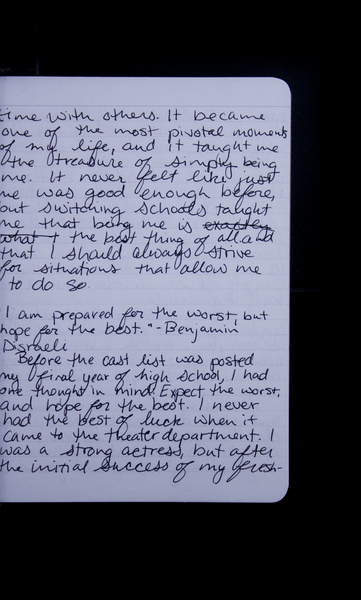 time with others. It became
one of the most pivotal moments
of my life, and it taught me
the treasure of simply being
me. It never felt like just
me was good enough before,
but switching schools taught
me that being me is exactly
what I the best thing of all and
that I should always strive
for situations that allow me
to do so.
I am prepared for the worst, but
hope for the best." - Benjamin
Disraeli
Before the cast list was posted
my final year of high school, I had
one thought in mind. Expect the worst,
and hope for the best. I never
had the best of luck when it
came to the theater department. I
was a strong actress, but after
the initial success of my fresh-